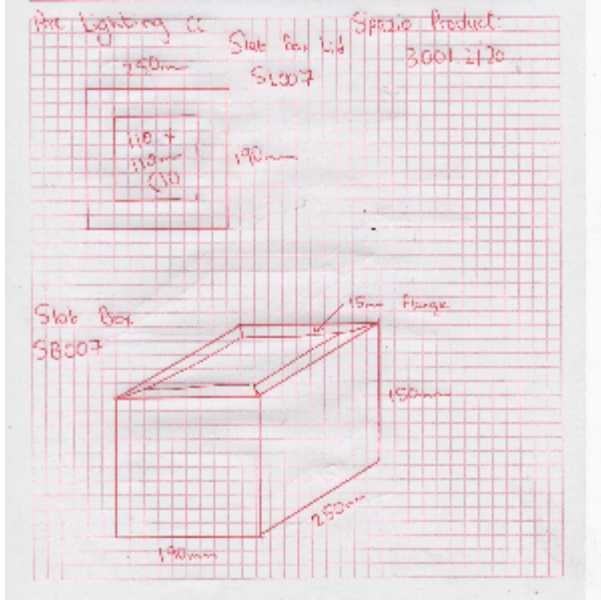 Arc Lighting CC
Slab Box Lid
SL007
Spazio Product:
3001.2120
250mm
110 x
110mm
190mm
Slab Box
SB007
15mm Flange
150mm
250mm
190mm